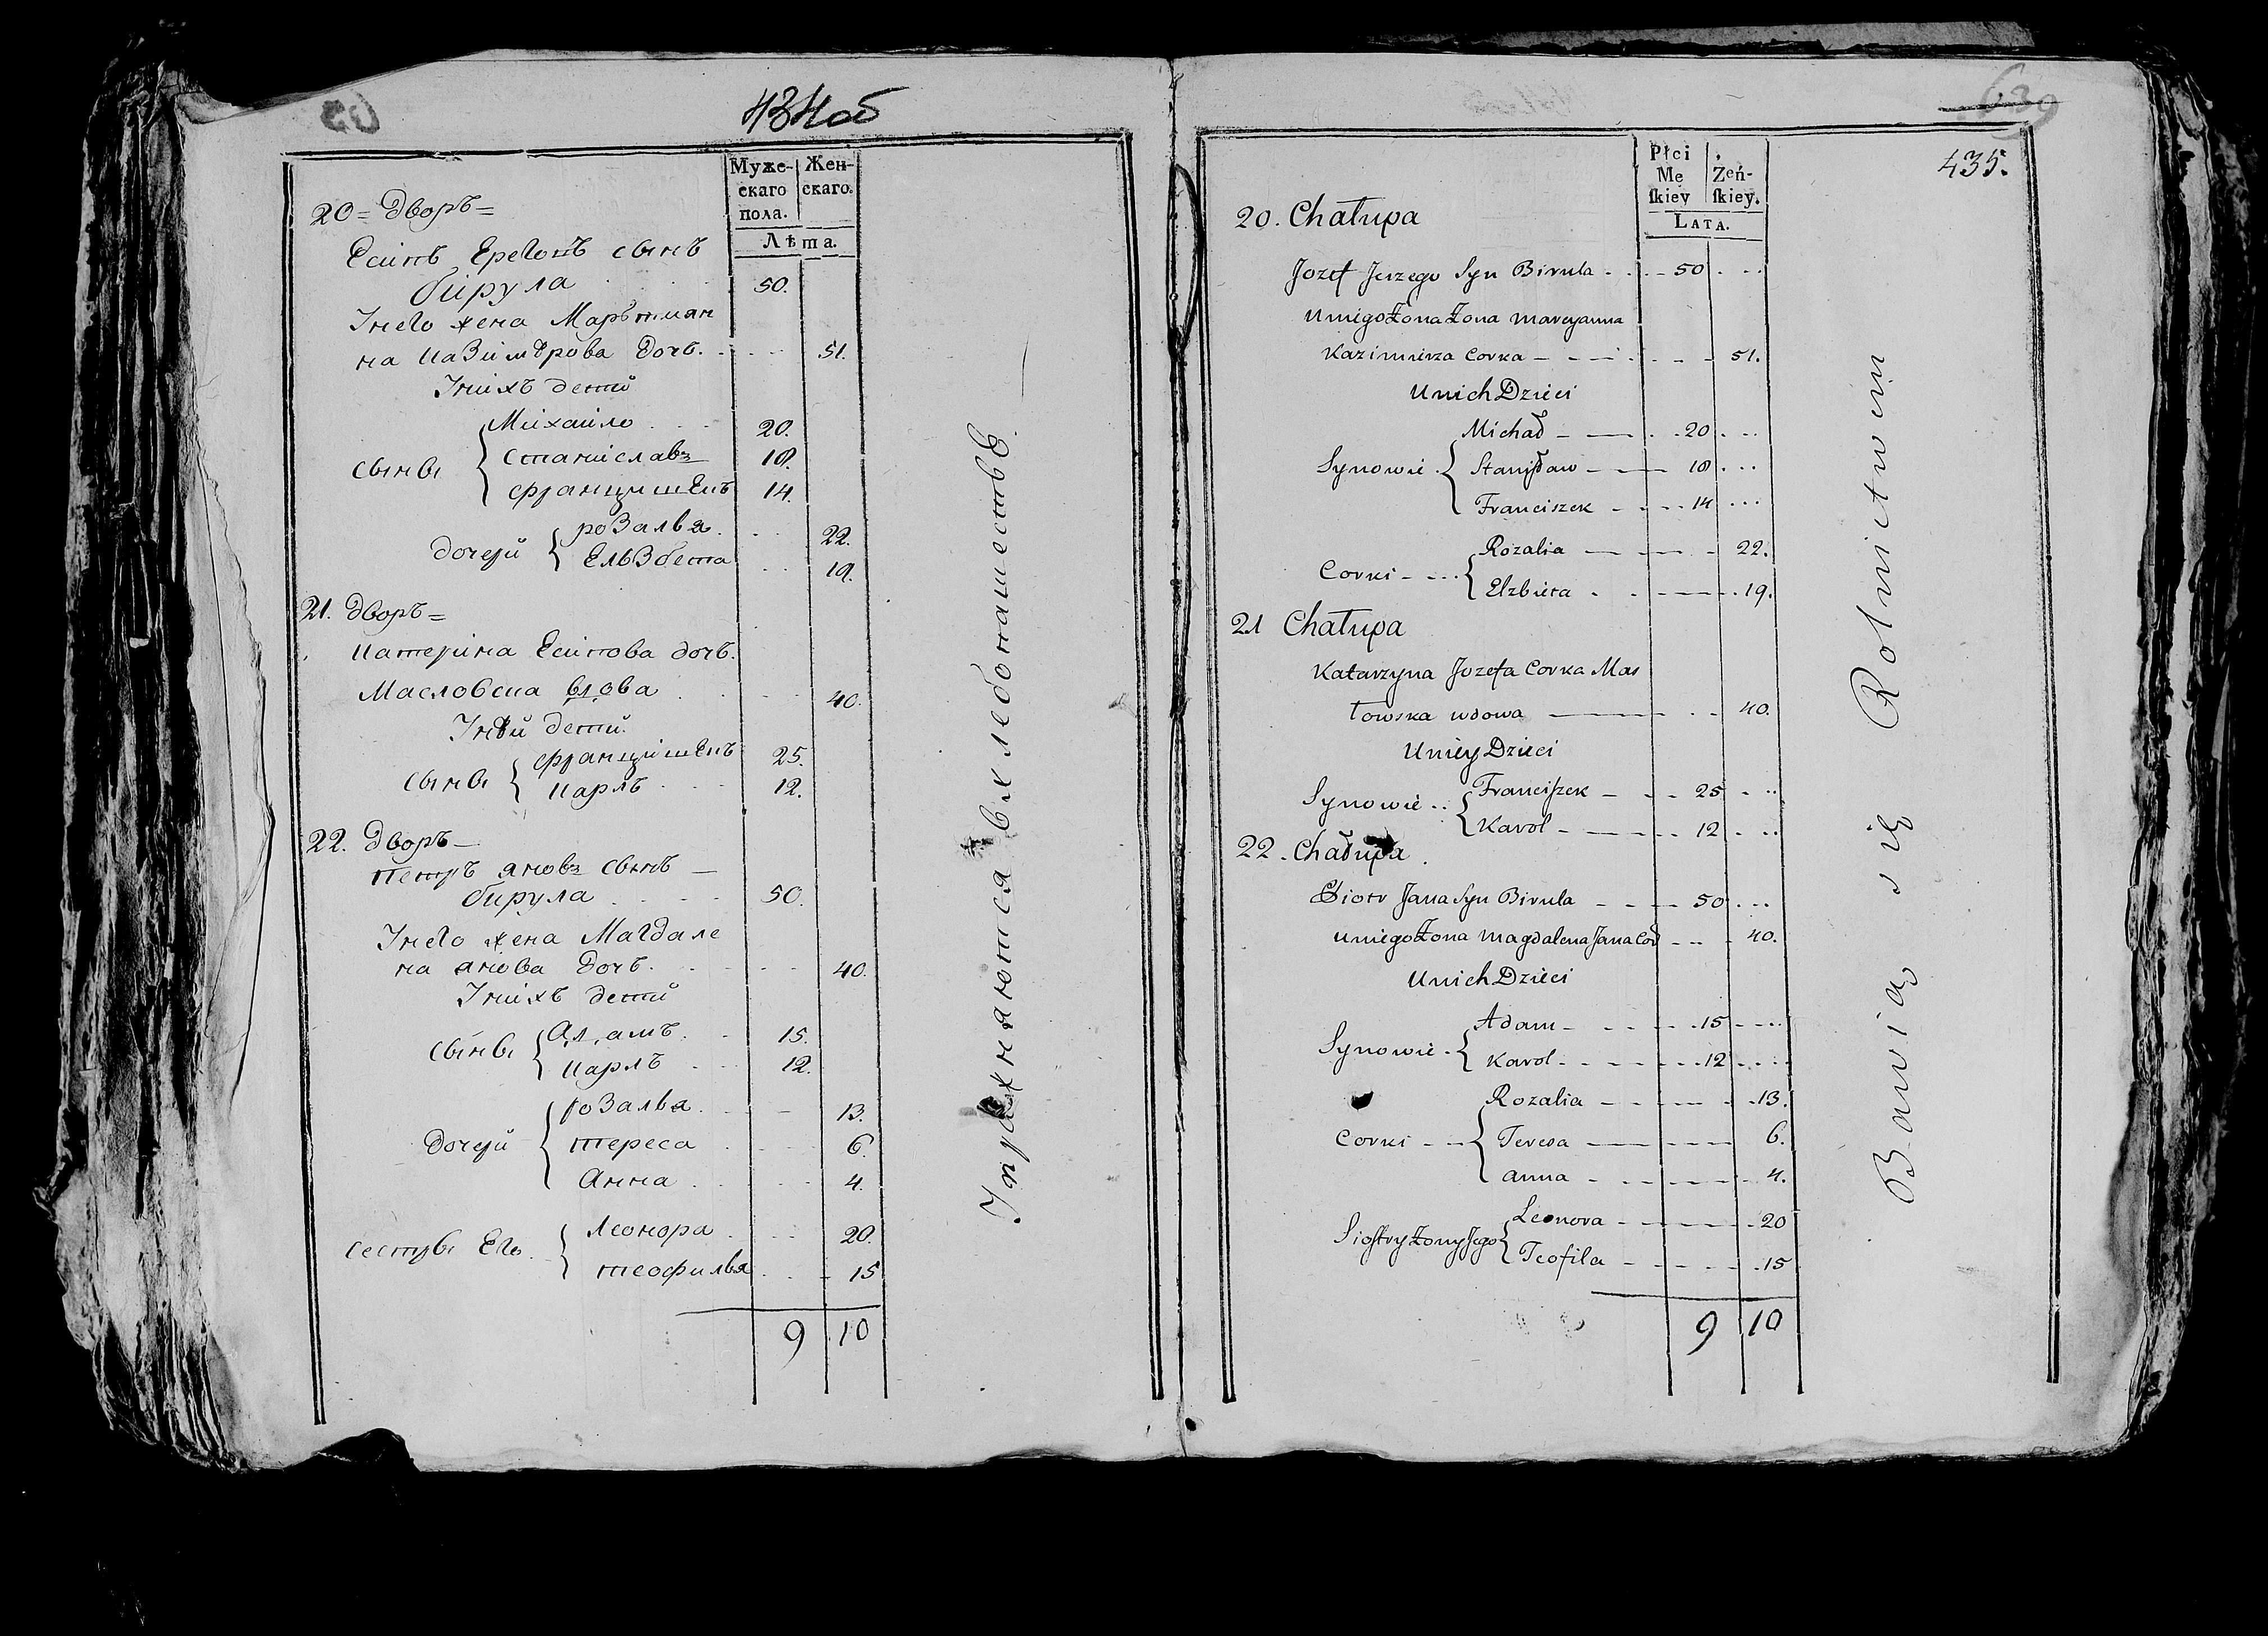 434об
Муже- Жен-
скаго скаго.
пола.
Лѣта.
20 = Дворъ =
Есипъ Ереговъ сынъ
бирула 50.
Унего жена Марьтиан
на казимѣрова дочь. 51.
Унихъ дети
Михаило 20.
сынвы Станиславъ 18.
францишекъ 14.
дочери розалья 22.
Ельзбета 19.
21. Дворъ =
катерина Есипова дочь.
Масловска вдова 40.
Унѣи дети.
сынвы францишекъ 25.
карлъ 12.
22. Дворъ —
петръ яновъ сынъ —
бирула 50.
Унего жена Магдале
на янова дочь. 40.
Унихъ дети
сынвы Адамъ 15.
карлъ 12.
розалья 13.
дочери тереса 6.
Анна 4.
сестры Его Леонора 20.
теофилья 15
9 10
Упражняются в хлебопашестве.
639
435.
Płci Żeń-
Mę skiey.
skiey
LATA.
20. Chałupa
Jozef Jerzego Syn Birula 50
U niego Żona Żona Maryanna
Kazimierza Corka 51.
U nich Dzieci
Michał 20
Synowie Stanisław 18
Franciszek 14
Rozalia 22.
Corki Elzbieta 19.
21 Chałupa
Katarzyna Jozefa Corka Mas
łowska wdowa 40.
U niey Dzieci
Synowie Franciszek 25
Karol 12
22. Chałupa
Piotr Jana Syn Birula 50
U niego Żona Magdalena Jana Cor 40.
U nich Dzieci
Adam 15
Synowie Karol 12
Rozalia 13.
Corki Teresa 6.
Anna 4.
Leonora 20
Siostry Żony Jego Teofila 15
9 10
Bawią się Rolnictwem